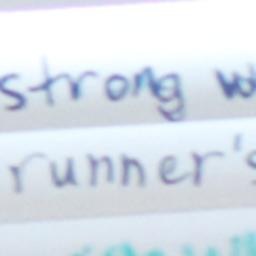 strong w
runner's